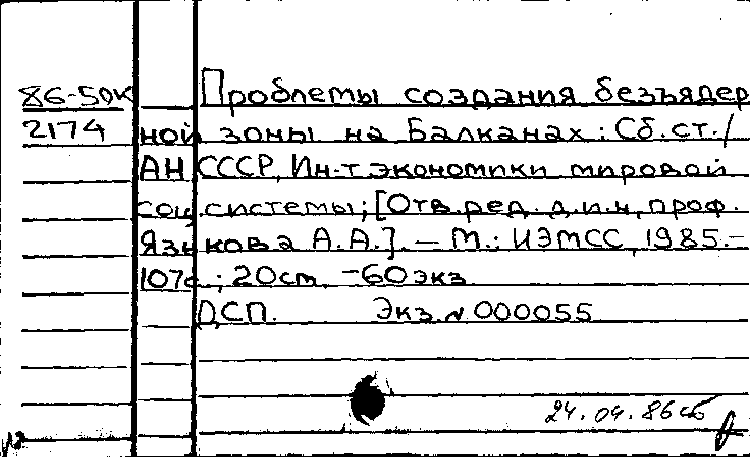 86-50К Проблемы создания безъядер
2174 ной зоны на Балканах: Сб. ст. /
АН СССР, Ин-т экономики мировой
соц. системы; [Отв. ред. д.и.н., проф.
Язькова А.А.]. – М.: ИЭМСС, 1985. –
107с.; 20см. – 60 экз.
ДСП. Экз. № 000055
24.04.86